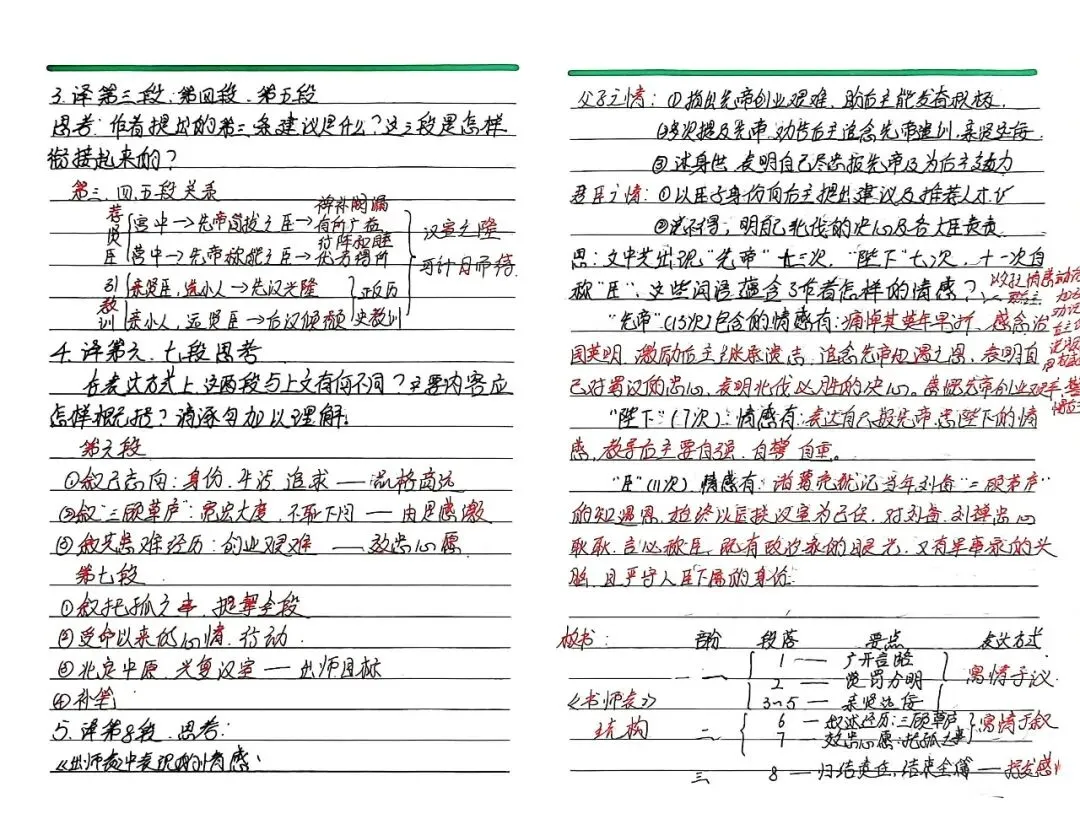 3.译第三段.第四段.第五段
思考:作者提出的第三条建议是什么?这三段是怎样
衔接起来的?
第三.四.五段关系
荐贤臣
宫中→先帝简拔之臣→裨补阙漏
有所广益
营中→先帝称能之臣→行阵和睦
优劣得所
汉室之隆
可计日而待
引教训
亲贤臣,远小人→先汉兴隆
亲小人,远贤臣→后汉倾颓
正反历
史教训
4.译第六.七段思考
在表达方式上,这两段与上文有何不同?主要内容应
怎样概括?请逐句加以理解.
第六段
①叙己志向:身份.生活.追求——品格高远
②叙"三顾草庐":宽宏大度.不耻下问——由是感激
③叙其患难经历:创业艰难——效忠心愿
第七段
①叙托孤之事.提挈全段
②受命以来的心情.行动
③北定中原.兴复汉室——出师目标
④补笔
5.译第8段.思考:
《出师表》中表现的情感:
父子之情:①指出先帝创业艰难.助后主能发奋积极.
②多次提及先帝.劝告后主追念先帝遗训,亲贤远佞
③述身世.表明自己尽忠报先帝及为后主效力
君臣之情:①以臣子身份向后主提出建议及推荐人才
②说不得;明自己北伐的决心及各大臣责责
思:文中共出现"先帝"十三次,"陛下"七次,十一次自
称"臣".这些词语蕴含了作者怎样的情感?
"先帝"(13次)包含的情感有:痛悼其英年早逝.感念治
国英明.激励后主继承遗志.追念先帝知遇之恩,表明自
己对蜀汉的忠心.表明北伐必胜的决心.
"陛下"(7次):情感有:表达自己报先帝.忠陛下的情
感.教导后主要自强.自尊.自重。
"臣"(11次)情感有:诸葛亮铭记当年刘备"三顾草庐"
的知遇恩.始终以匡扶汉室为己任.对刘备.刘禅忠心
耿耿.言必称臣.既有政治家的眼光.又有军事家的头
脑.且严守人臣下属的身份.
板书:
《出师表》
结构
部份 段落 要点 表达方式
一 1——广开言路
2——赏罚分明
3~5——亲贤远佞
寓情于议
二 6——叙述经历:三顾草庐
7——效忠心愿:托孤之事
寓情于叙
三 8——归结责任,结束全篇——抒发感